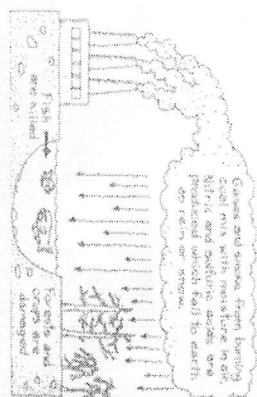 Gases and smoke from burning
coal mix with moisture in air.
Nitric and sulfuric acids are
produced which fall to earth
as rain or snow.
Fish
are killed
Forests and
crops are
damaged